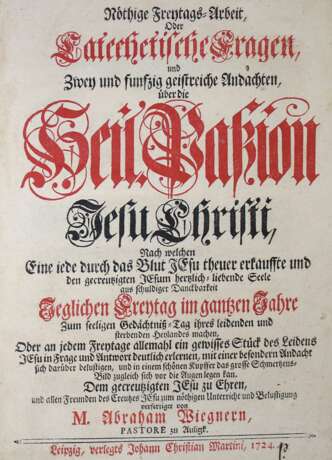 Nöthige Freytags-Arbeit,
Oder
Catechetische Fragen,
und
Zwey und funfzig geistreiche Andachten,
über die
Heil. Paßion
Jesu Christi,
Nach welchen
Eine iede durch das Blut JEsu theuer erkauffte und
den gecreutzigten JEsum hertzlich-liebende Seele
aus schuldiger Danckbarkeit
Jeglichen Freytag im gantzen Jahre
Zum seeligen Gedächtniß-Tag ihres leidenden und
sterbenden Heylandes machen,
Oder an jedem Freytage allemahl ein gewisses Stück des Leidens
JEsu in Frage und Antwort deutlich erlernen, mit einer besondern Andacht
sich darüber belustigen, und in einem schönen Kupffer das grosse Schmertzens-
Bild zugleich sich vor die Augen legen kan.
Dem gecreutzigten JEsu zu Ehren,
und allen Freunden des Creutzes JEsu zum nöthigen Unterricht und Belustigung
verfertiget von
M. Abraham Wiegnern,
PASTORE zu Auligk.
Leipzig, verlegts Johann Christian Martini, 1724.